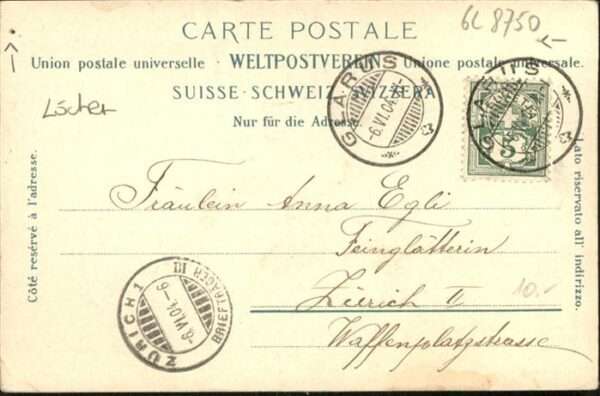 GL 8750
CARTE POSTALE
Union postale universelle · WELTPOSTVEREIN · Unione postale universale.
SUISSE · SCHWEIZ · SVIZZERA
Nur für die Adresse.
Löscher
GLARUS
-6.VI.04.
GLARUS
5
Côté reservé à l'adresse.
Lato riservato all' indirizzo.
Fräulein Anna Egli
Feinglätterin
Zürich II
Waffenplatzstrasse
10.-
ZÜRICH 1
-6.VI.04.-6
BRIEFTRÄGER III